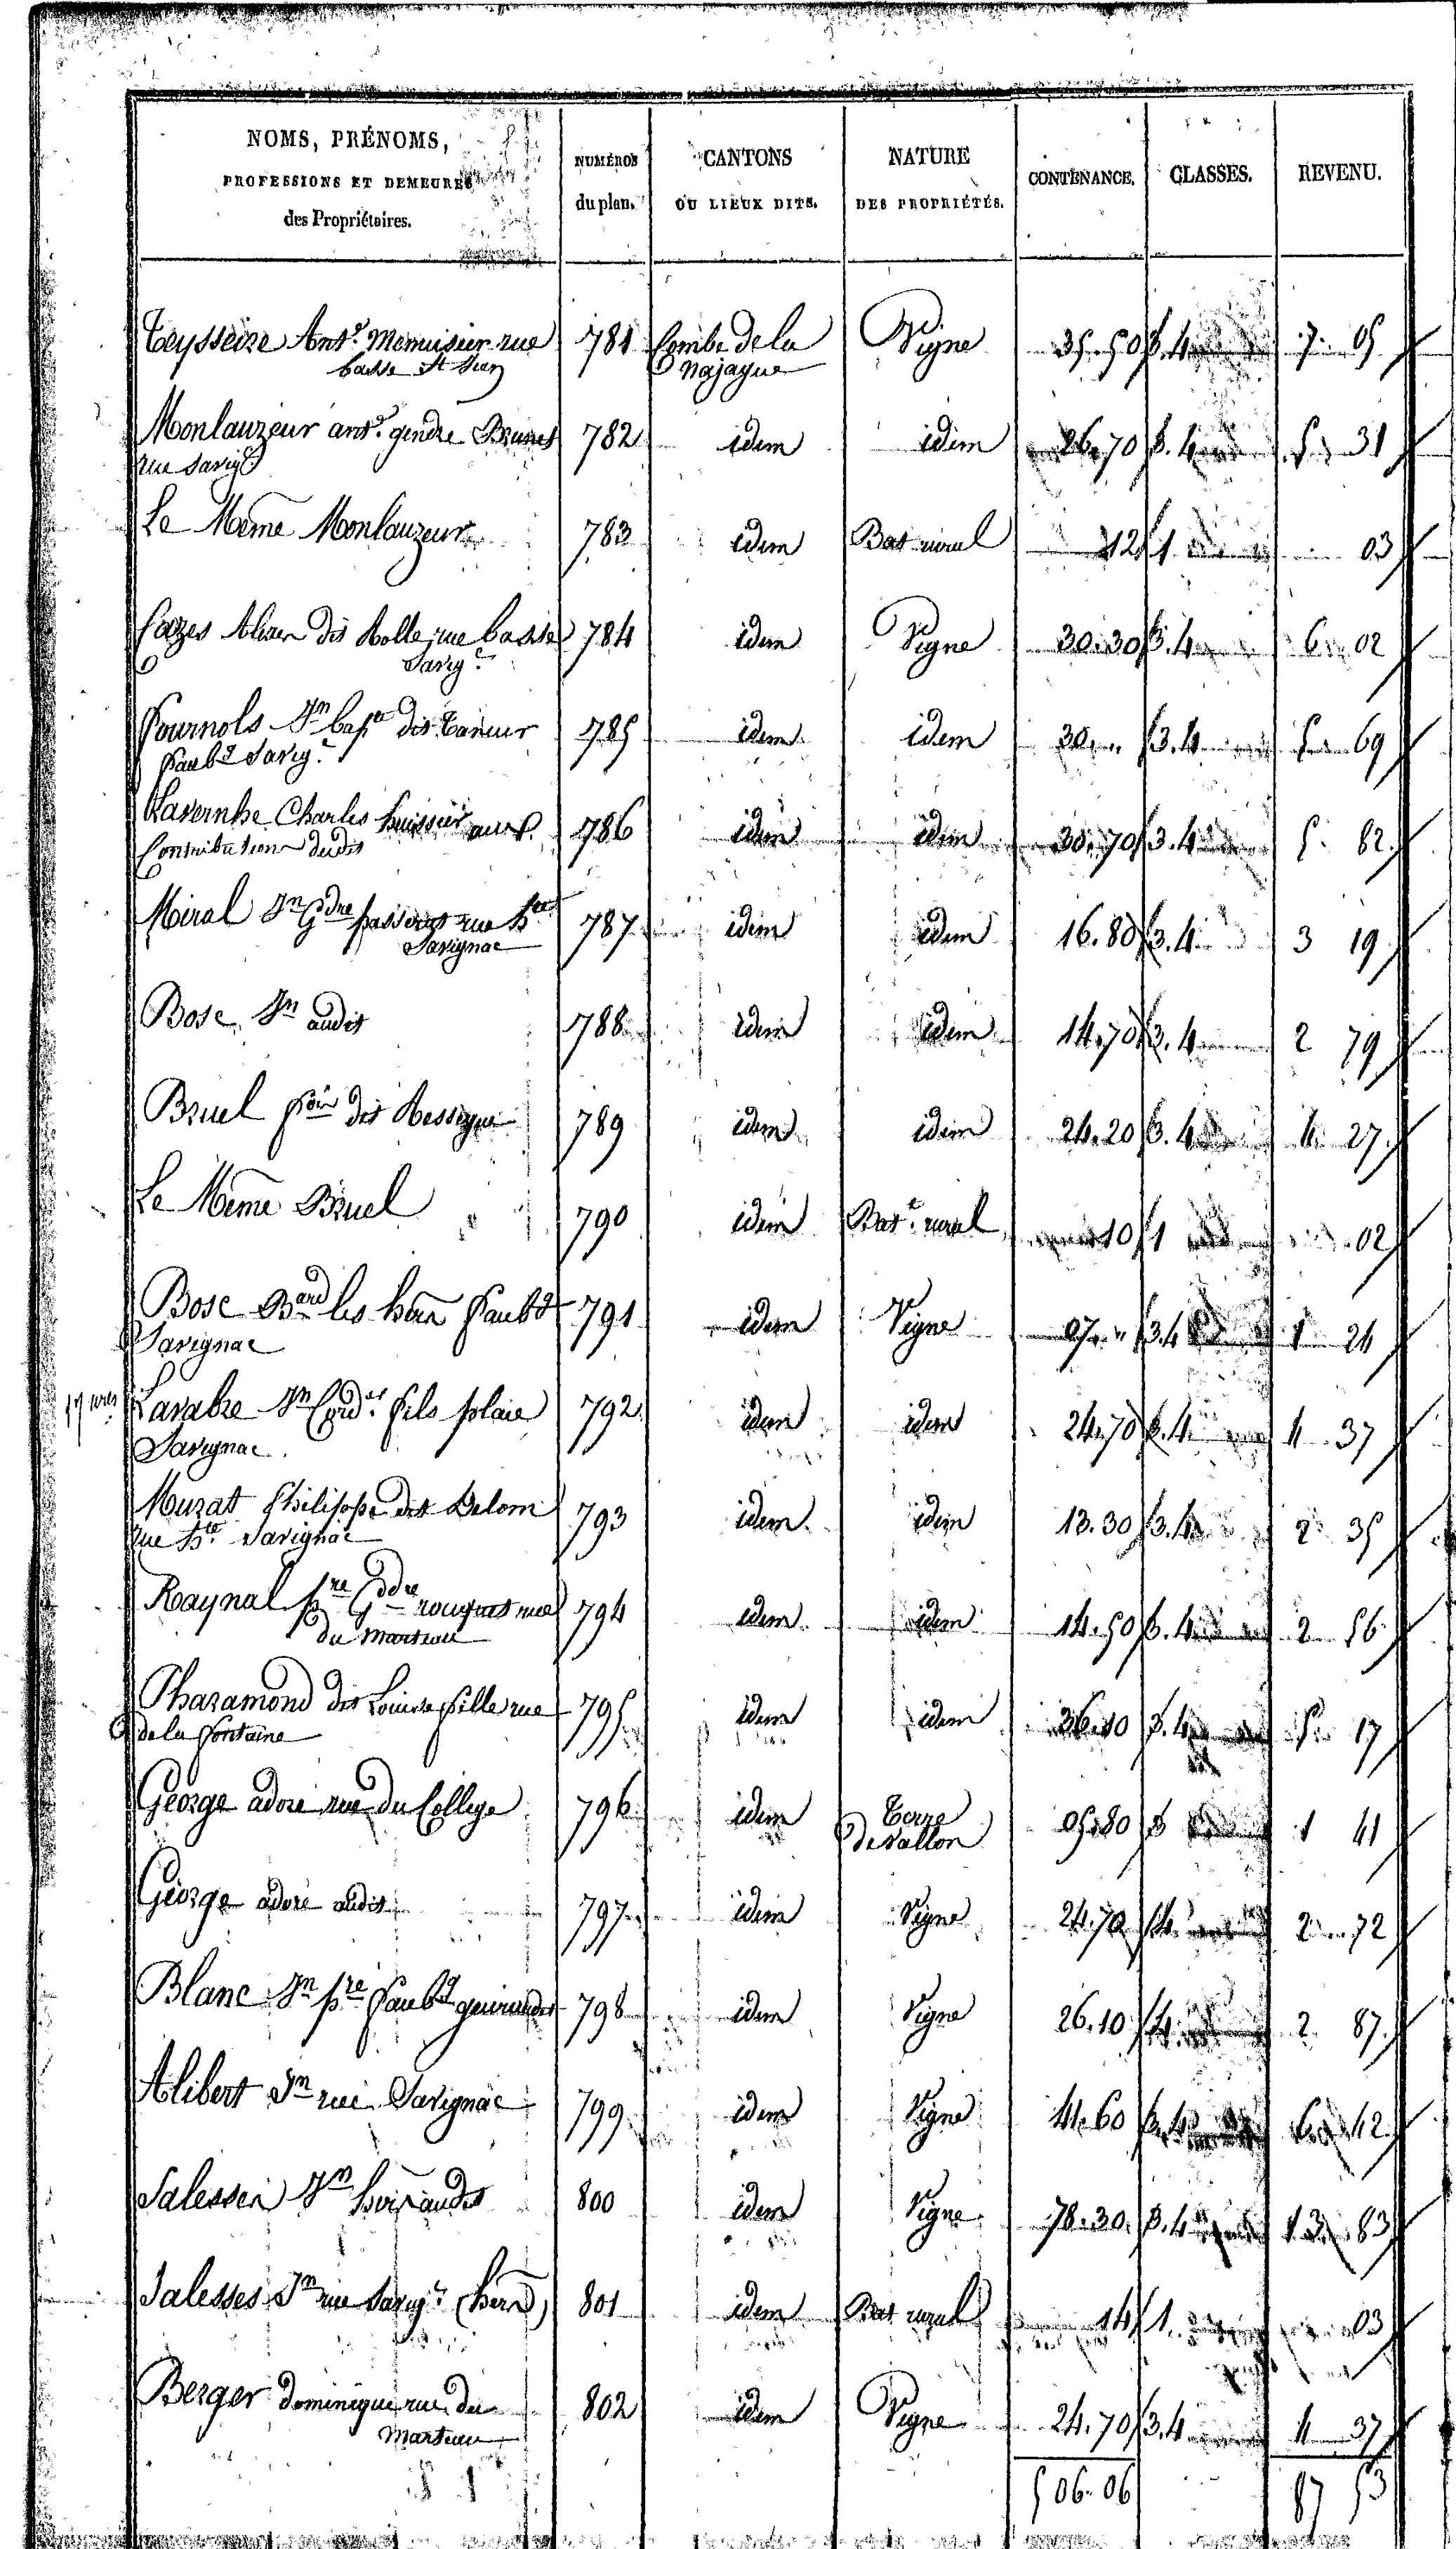 NOMS, PRÉNOMS, PROFESSIONS ET DEMEURES des Propriétaires. NUMÉROS du plan. CANTONS OU LIEUX DITS. NATURE DES PROPRIÉTÉS. CONTENANCE. CLASSES. REVENU.
Teysseire Ant. Menuisier rue 781 Combe de la Vigne 35.50 3.4 7 05
basse St Jean Najague
Monlauzeur ant. gendre Brunet 782 idem idem 26.70 3.4 5 31
rue Savig
Le Même Monlauzeur 783 idem Bat rural 12 1 03
Cazes dit Rolle rue basse 784 idem Vigne 30.30 3.4 6 02
Savig
Fournols Jn bapte dit Taneur 785 idem idem 30 3.4 5 69
Faubg Savig
Lavernhe Charles huissier 786 idem idem 30.70 3.4 5 82
Contribution dudit
Miral Jn Gdre rue hte 787 idem idem 16.80 3.4 3 19
Savignac
Bosc Jn audit 788 idem idem 14.70 3.4 2 79
Bruel dit 789 idem idem 24.20 3.4 4 27
Le Même Bruel 790 idem Bat. rural 10 1 02
Bosc les hers Faubg 791 idem Vigne 07 3.4 1 24
Savignac
Lavabre Jn fils place 792 idem idem 24.70 3.4 4 37
Savignac
Murat Philippe dit Delom 793 idem idem 13.30 3.4 2 35
rue hte Savignac
Raynal pre Gdre rouquet rue 794 idem idem 14.50 3.4 2 56
du Marteau
Pharamond dit Louise fille rue 795 idem idem 36.10 3.4 5 17
de la fontaine
George adoré rue du College 796 idem Terre 05.80 3 1 41
de vallon
George adoré audit 797 idem Vigne 24.70 4 2 72
Blanc Jn pre Faubg 798 idem Vigne 26.10 4 2 87
Alibert Jn rue Savignac 799 idem Vigne 41.60 3.4 6 42
Jn audit 800 idem Vigne 78.30 3.4 13 83
Salesses Jn rue Savig (hers) 801 idem Bat rural 14 1 03
Berger dominique rue du 802 idem Vigne 24.70 3.4 4 37
Marteau
506.06 87 53